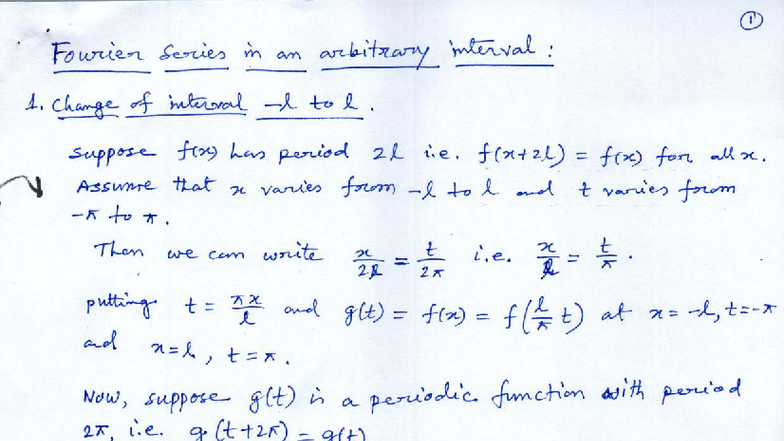 1
Fourier Series in an arbitrary interval :
1. Change of interval -l to l .
Suppose f(x) has period 2l i.e. f(x+2l) = f(x) for all x.
Assume that x varies from -l to l and t varies from
-π to π .
Then we can write x/2l = t/2π i.e. x/l = t/π .
putting t = πx/l and g(t) = f(x) = f(l/π t) at x = -l, t = -π
and x = l , t = π .
Now, suppose g(t) is a periodic function with period
2π, i.e. g(t+2π) = g(t)